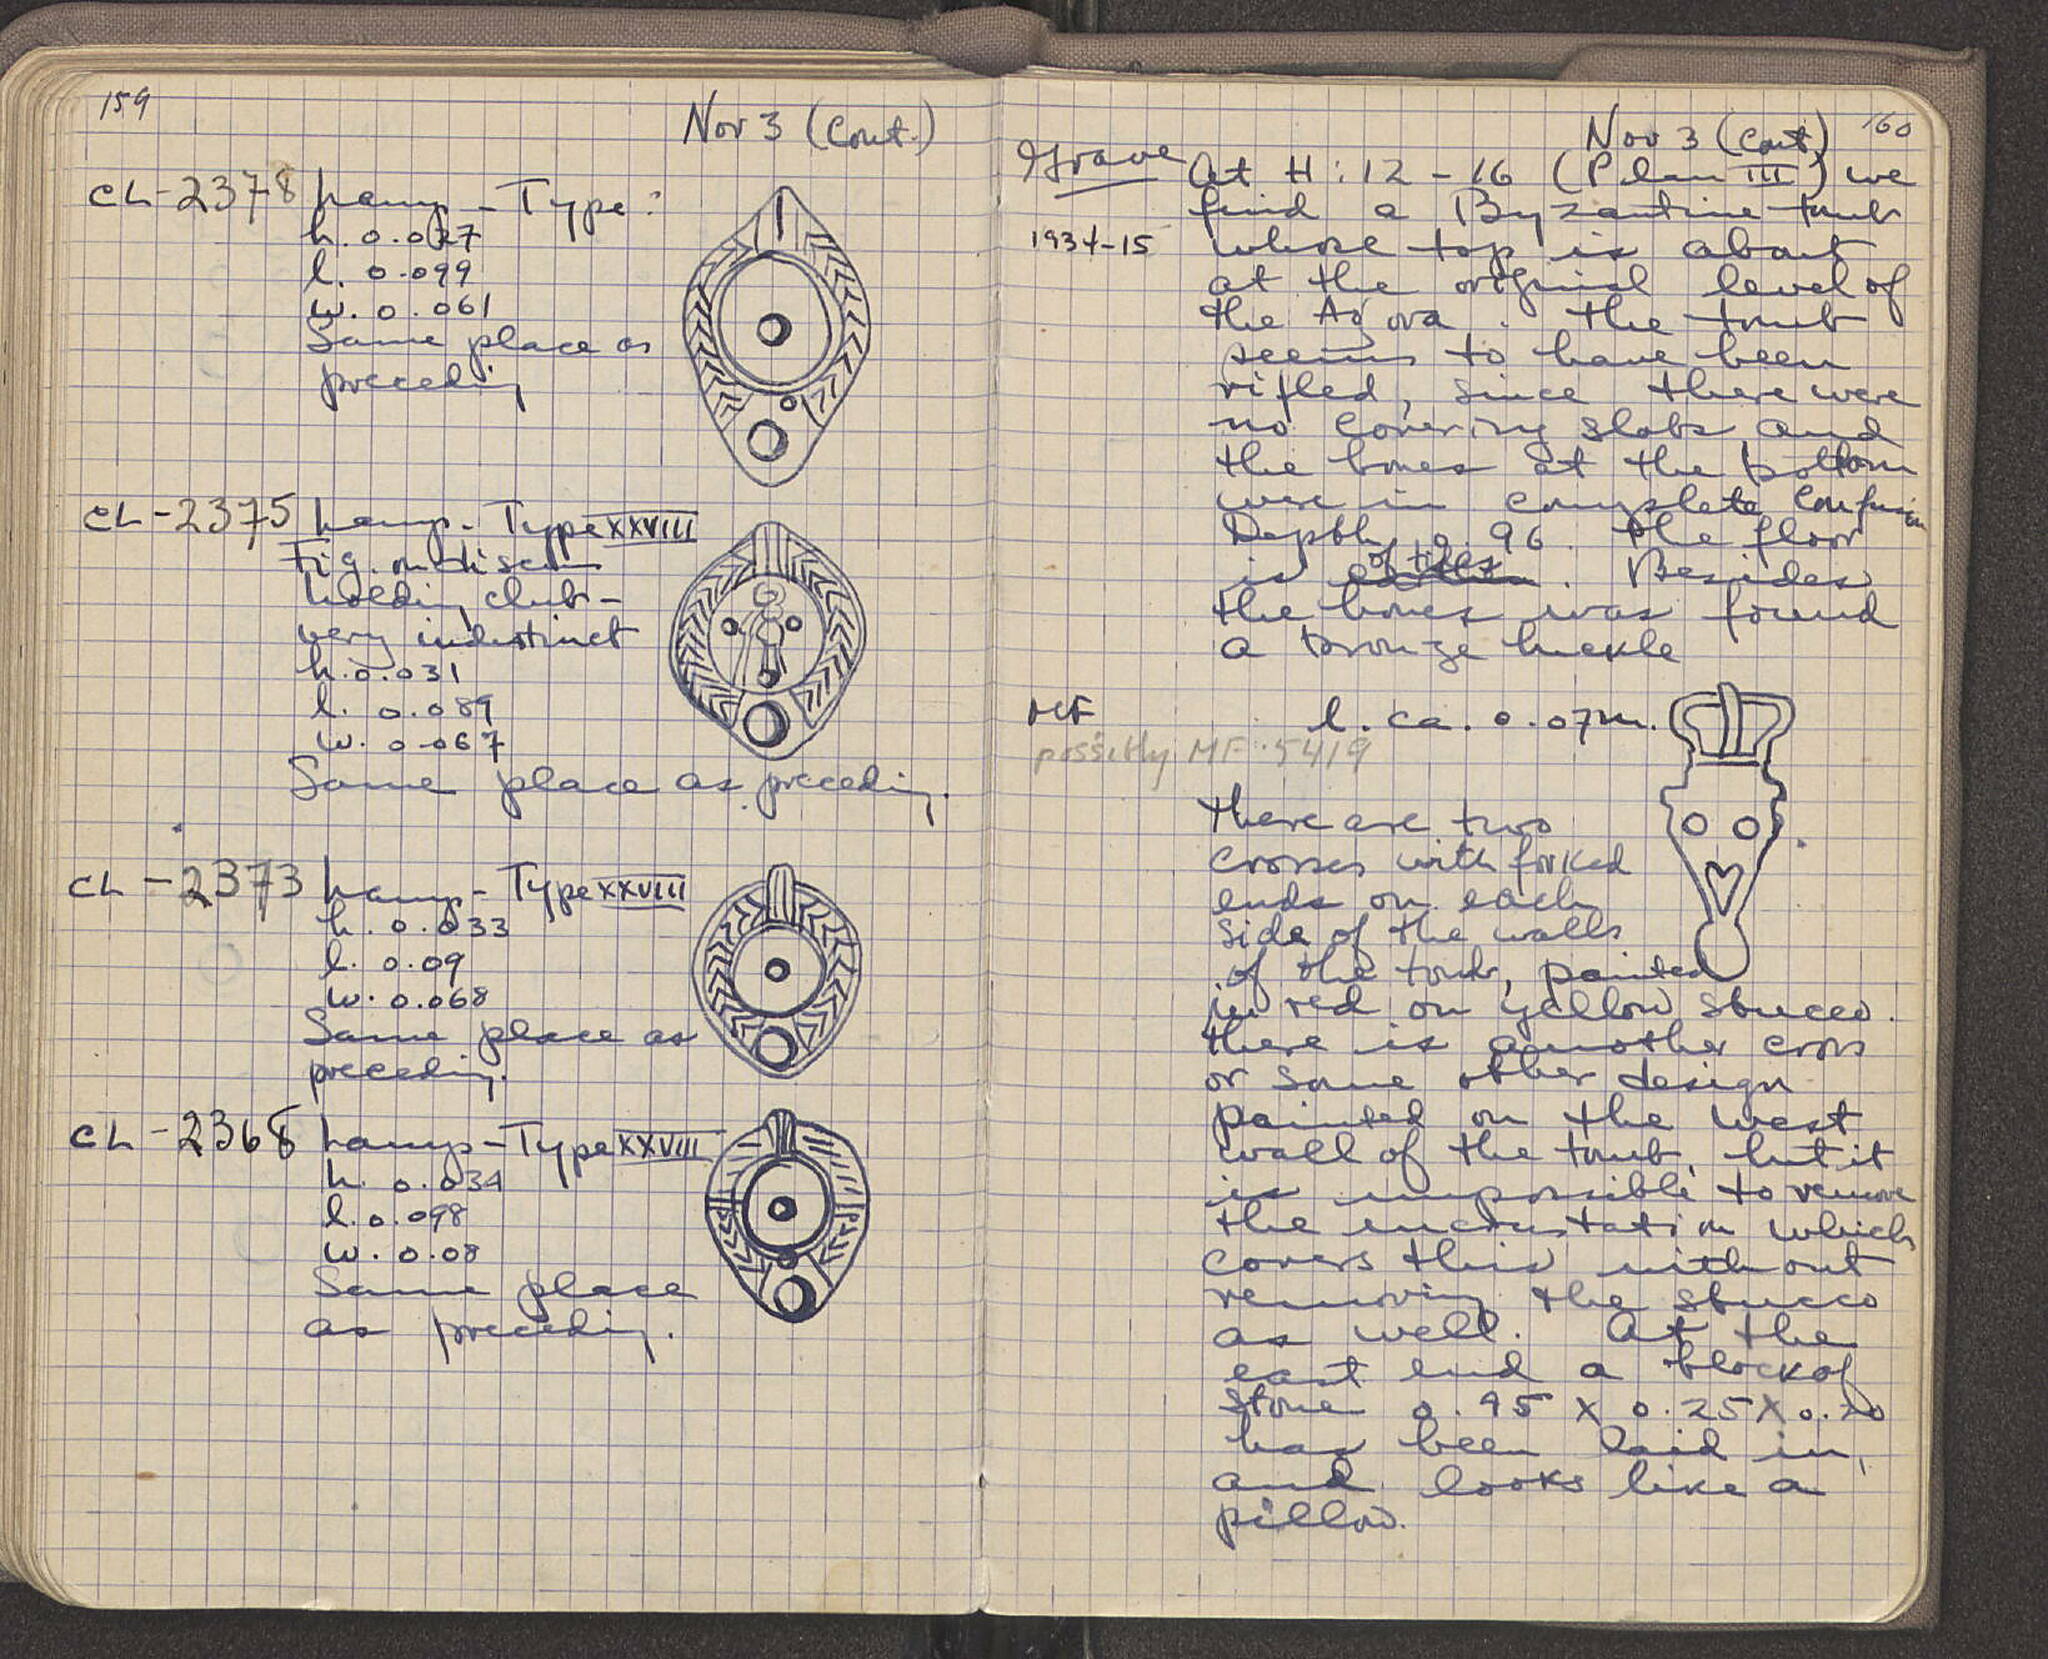 159
Nov 3 (Cont.)
CL-2378 Lamp - Type:
h. 0.027
l. 0.099
w. 0.061
Same place as
preceding
CL-2375 Lamp - Type XXVIII
Fig. on disc
holding club -
very indistinct
h. 0.031
l. 0.089
w. 0.067
Same place as preceding.
CL-2373 Lamp - Type XXVIII
h. 0.033
l. 0.09
w. 0.068
Same place as
preceding.
CL-2368 Lamp - Type XXVIII
h. 0.034
l. 0.098
w. 0.08
Same place
as preceding.
160
Nov 3 (Cont.)
Grave At H:12-16 (Plan III) we
find a Byzantine tomb
1934-15 whose top is about
at the original level of
the Agora. The tomb
seems to have been
rifled, since there were
no covering slabs and
the bones at the bottom
were in complete confusion
Depth, 0.96. The floor
is of tiles. Besides
the bones was found
a bronze buckle
MF l. ca. 0.07m.
possibly MF.5419
There are two
crosses with forked
ends on each
side of the walls
of the tomb, painted
in red on yellow stucco.
There is another cross
or some other design
painted on the west
wall of the tomb, but it
is impossible to remove
the incrustation which
covers this without
removing the stucco
as well. At the
east end a block of
stone 0.95 X 0.25 X 0.20
has been laid in,
and looks like a
pillow.